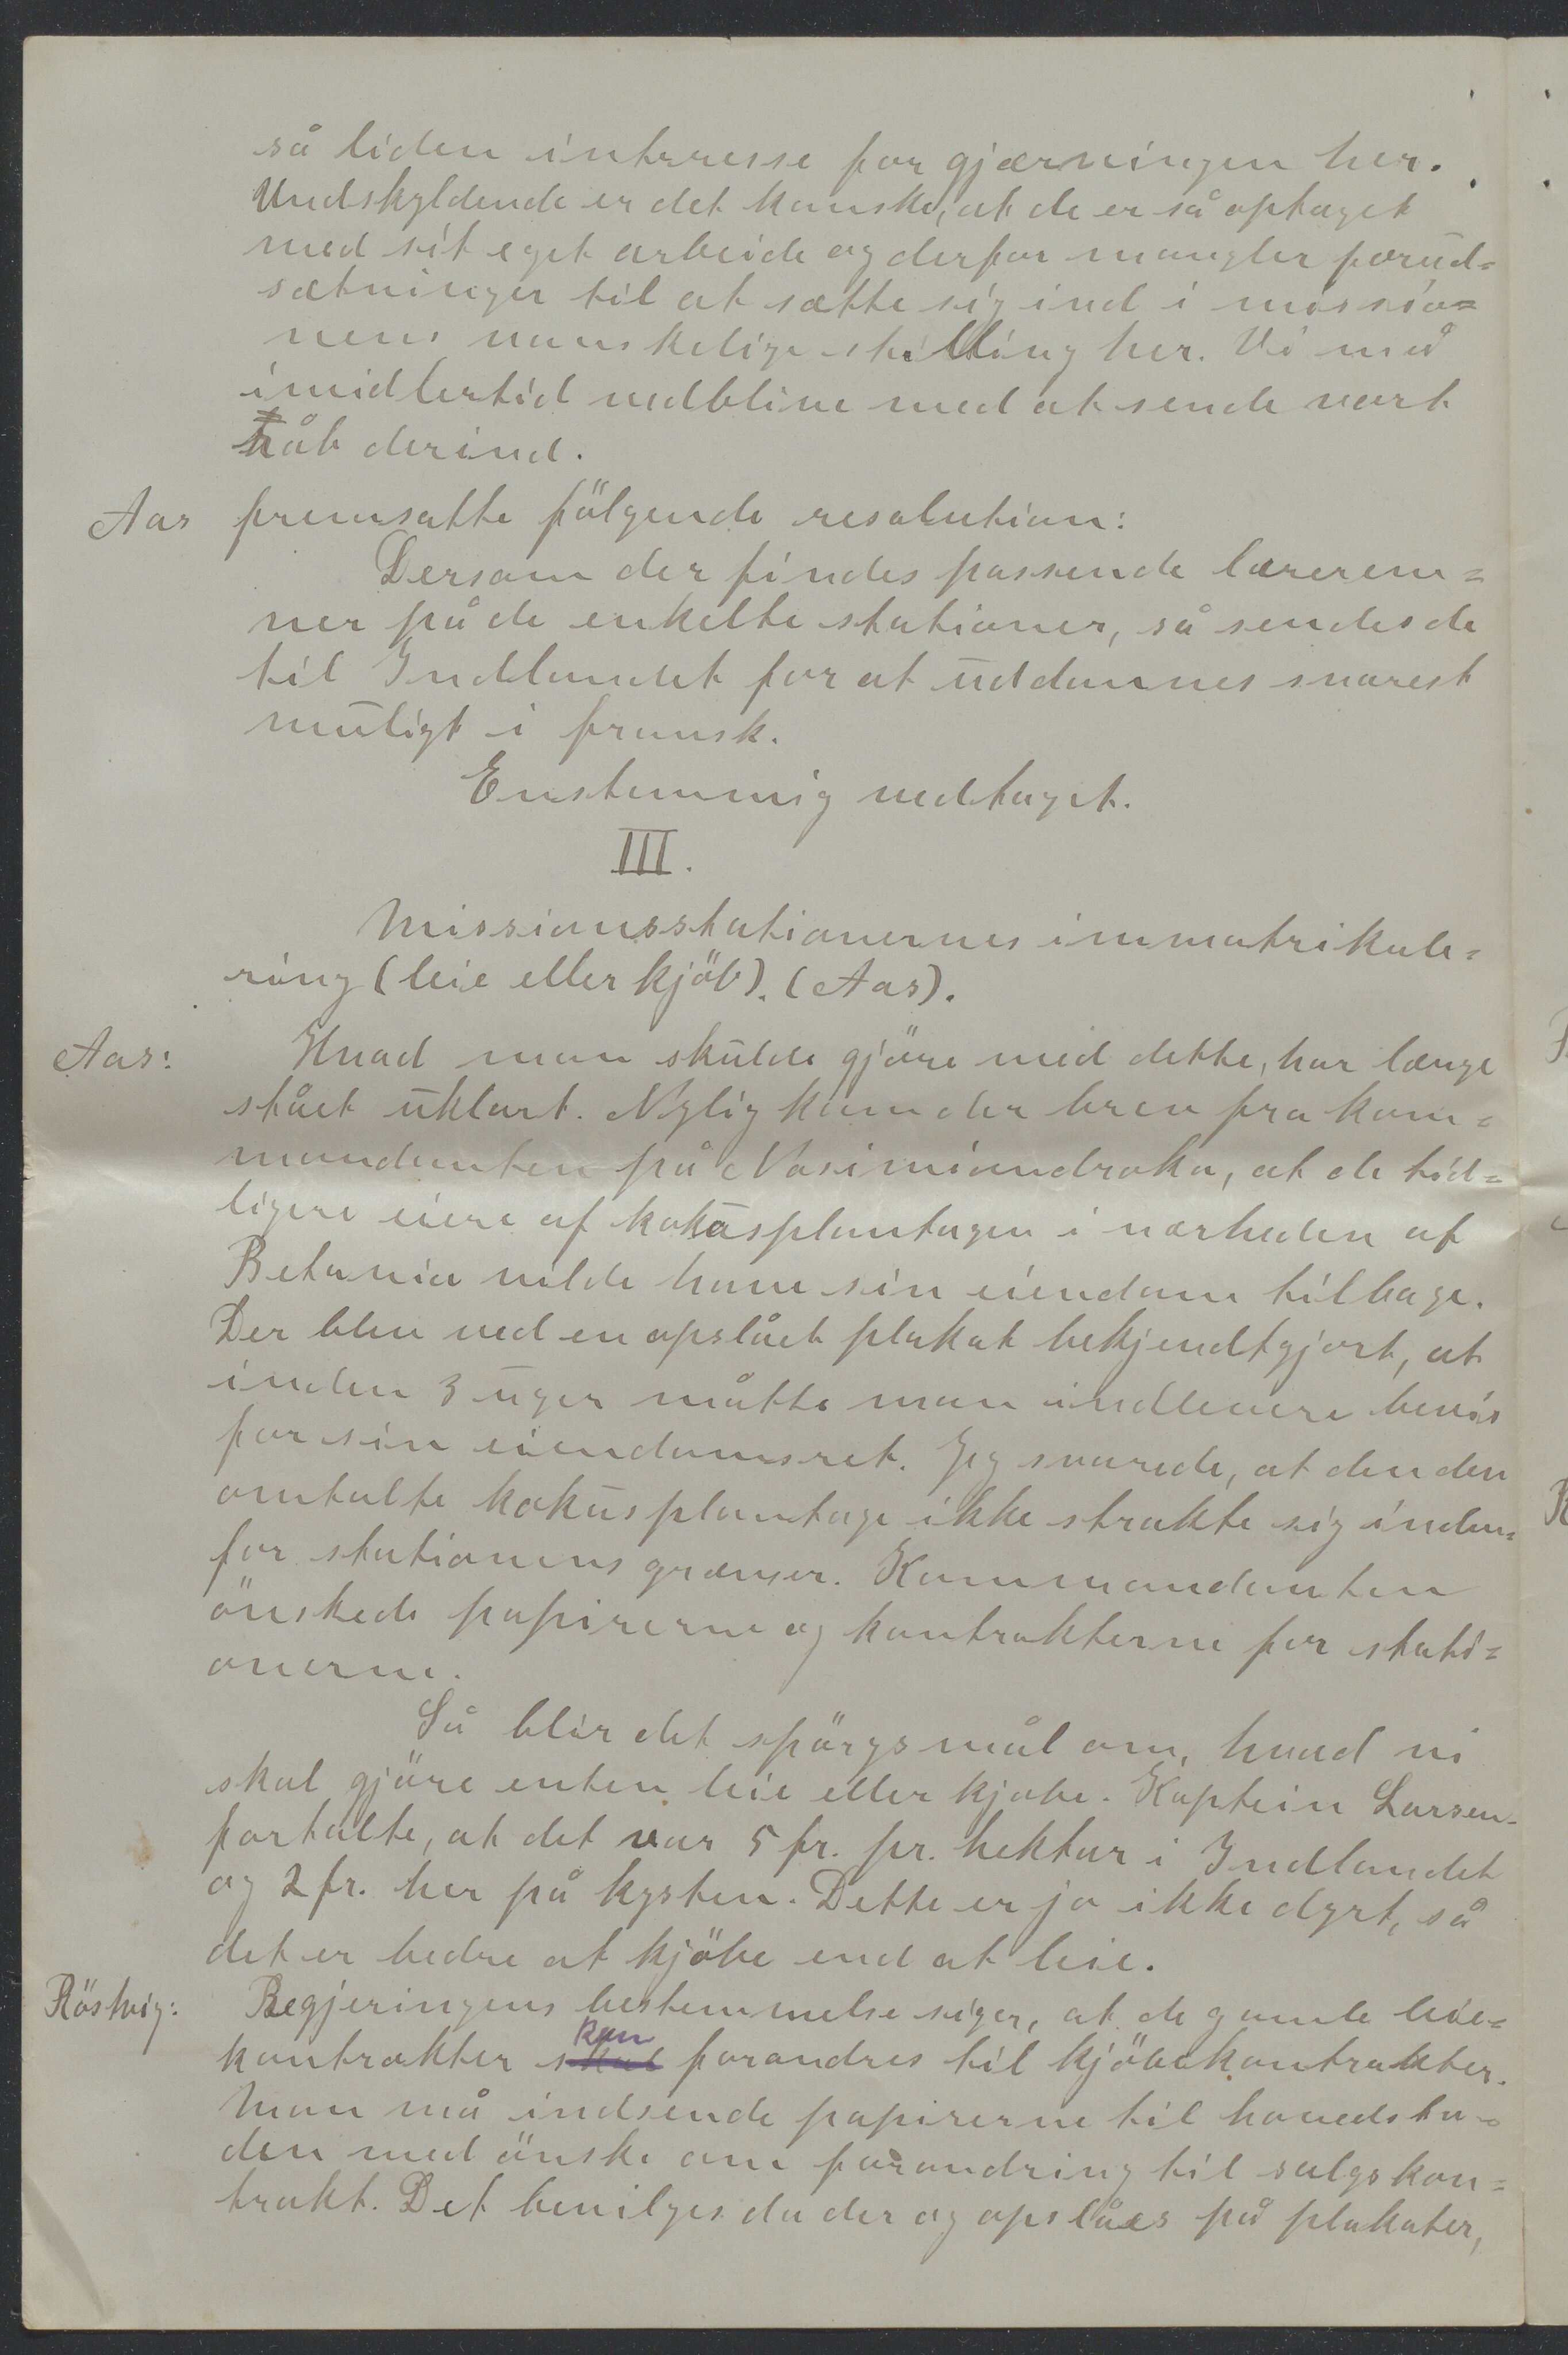 så liden intresse for gjærningen her.
Undskyldende er det kanske, at de er så optaget
med sit eget arbeide og derfor mangler forud=
sætninger til at sætte sig ind i missio=
nens vanskelige stilling her. Vi må
imidlertid vedblive med at sende vort
håb derind.
Aas fremsatte fölgende resolution:
Dersom der findes passende lærerem=
ner på de enkelte stationer, så sendes de
til Indlandet for at uddannes snarest
muligt i fransk.
Enstemmig vedtaget.
III.
Missionsstationernes immatrikule=
ring (leie eller kjöb). (Aas).
Aas: Hvad man skulde gjöre med dette, har længe
stået uklart. Nylig kom der brev fra kom=
mandanten på Nosimiandroka, at de tid=
ligere eiere af kokosplantagen i nærheden af
Betania vilde have sin eiendom tilbage.
Der blev ved en opslået plakat bekjendtgjort, at
inden 3 uger måtte man indlevere bevis
for sin eiendomsret. Jeg svarede, at den den
omtalte kokusplantage ikke strakte sig inden=
for stationens grænser. Kommandanten
önskede papirerne og kontrakterne for stati=
onerne.
Så blir det spörgsmål om, hvad vi
skal gjöre enten leie eller kjobe. Kaptein Larsen
fortalte, at det var 5 fr. pr. hektar i Indlandet
og 2 fr. her på kysten. Dette er jo ikke dyrt, så
det er bedre at kjöbe end at leie.
Röstvig: Regjeringens bestemmelse siger, at de gamle leie=
kontrakter skal kan forandres til kjöbekontrakter.
Man må indsende papirerne til hovedsta=
den med önske om forandring til salgskon=
trakt. Det bevilges da der og opslåes på plakater,